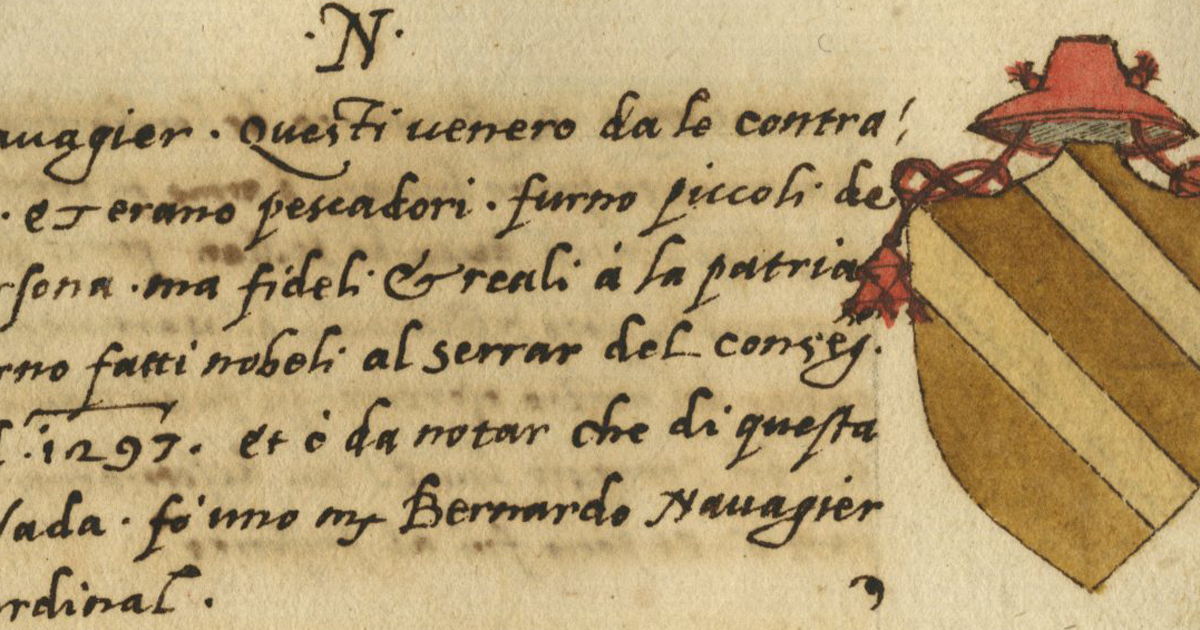 ·N·
auagier · Questi uenero da le contra
· et erano pescadori · furno piccoli de
rsona · ma fideli & reali à la patria
rno fatti nobeli al serrar del conseg.
l · 1297 · et è da notar che di questa
sada · fò uno mr Bernardo Nauagier
rdinal ·